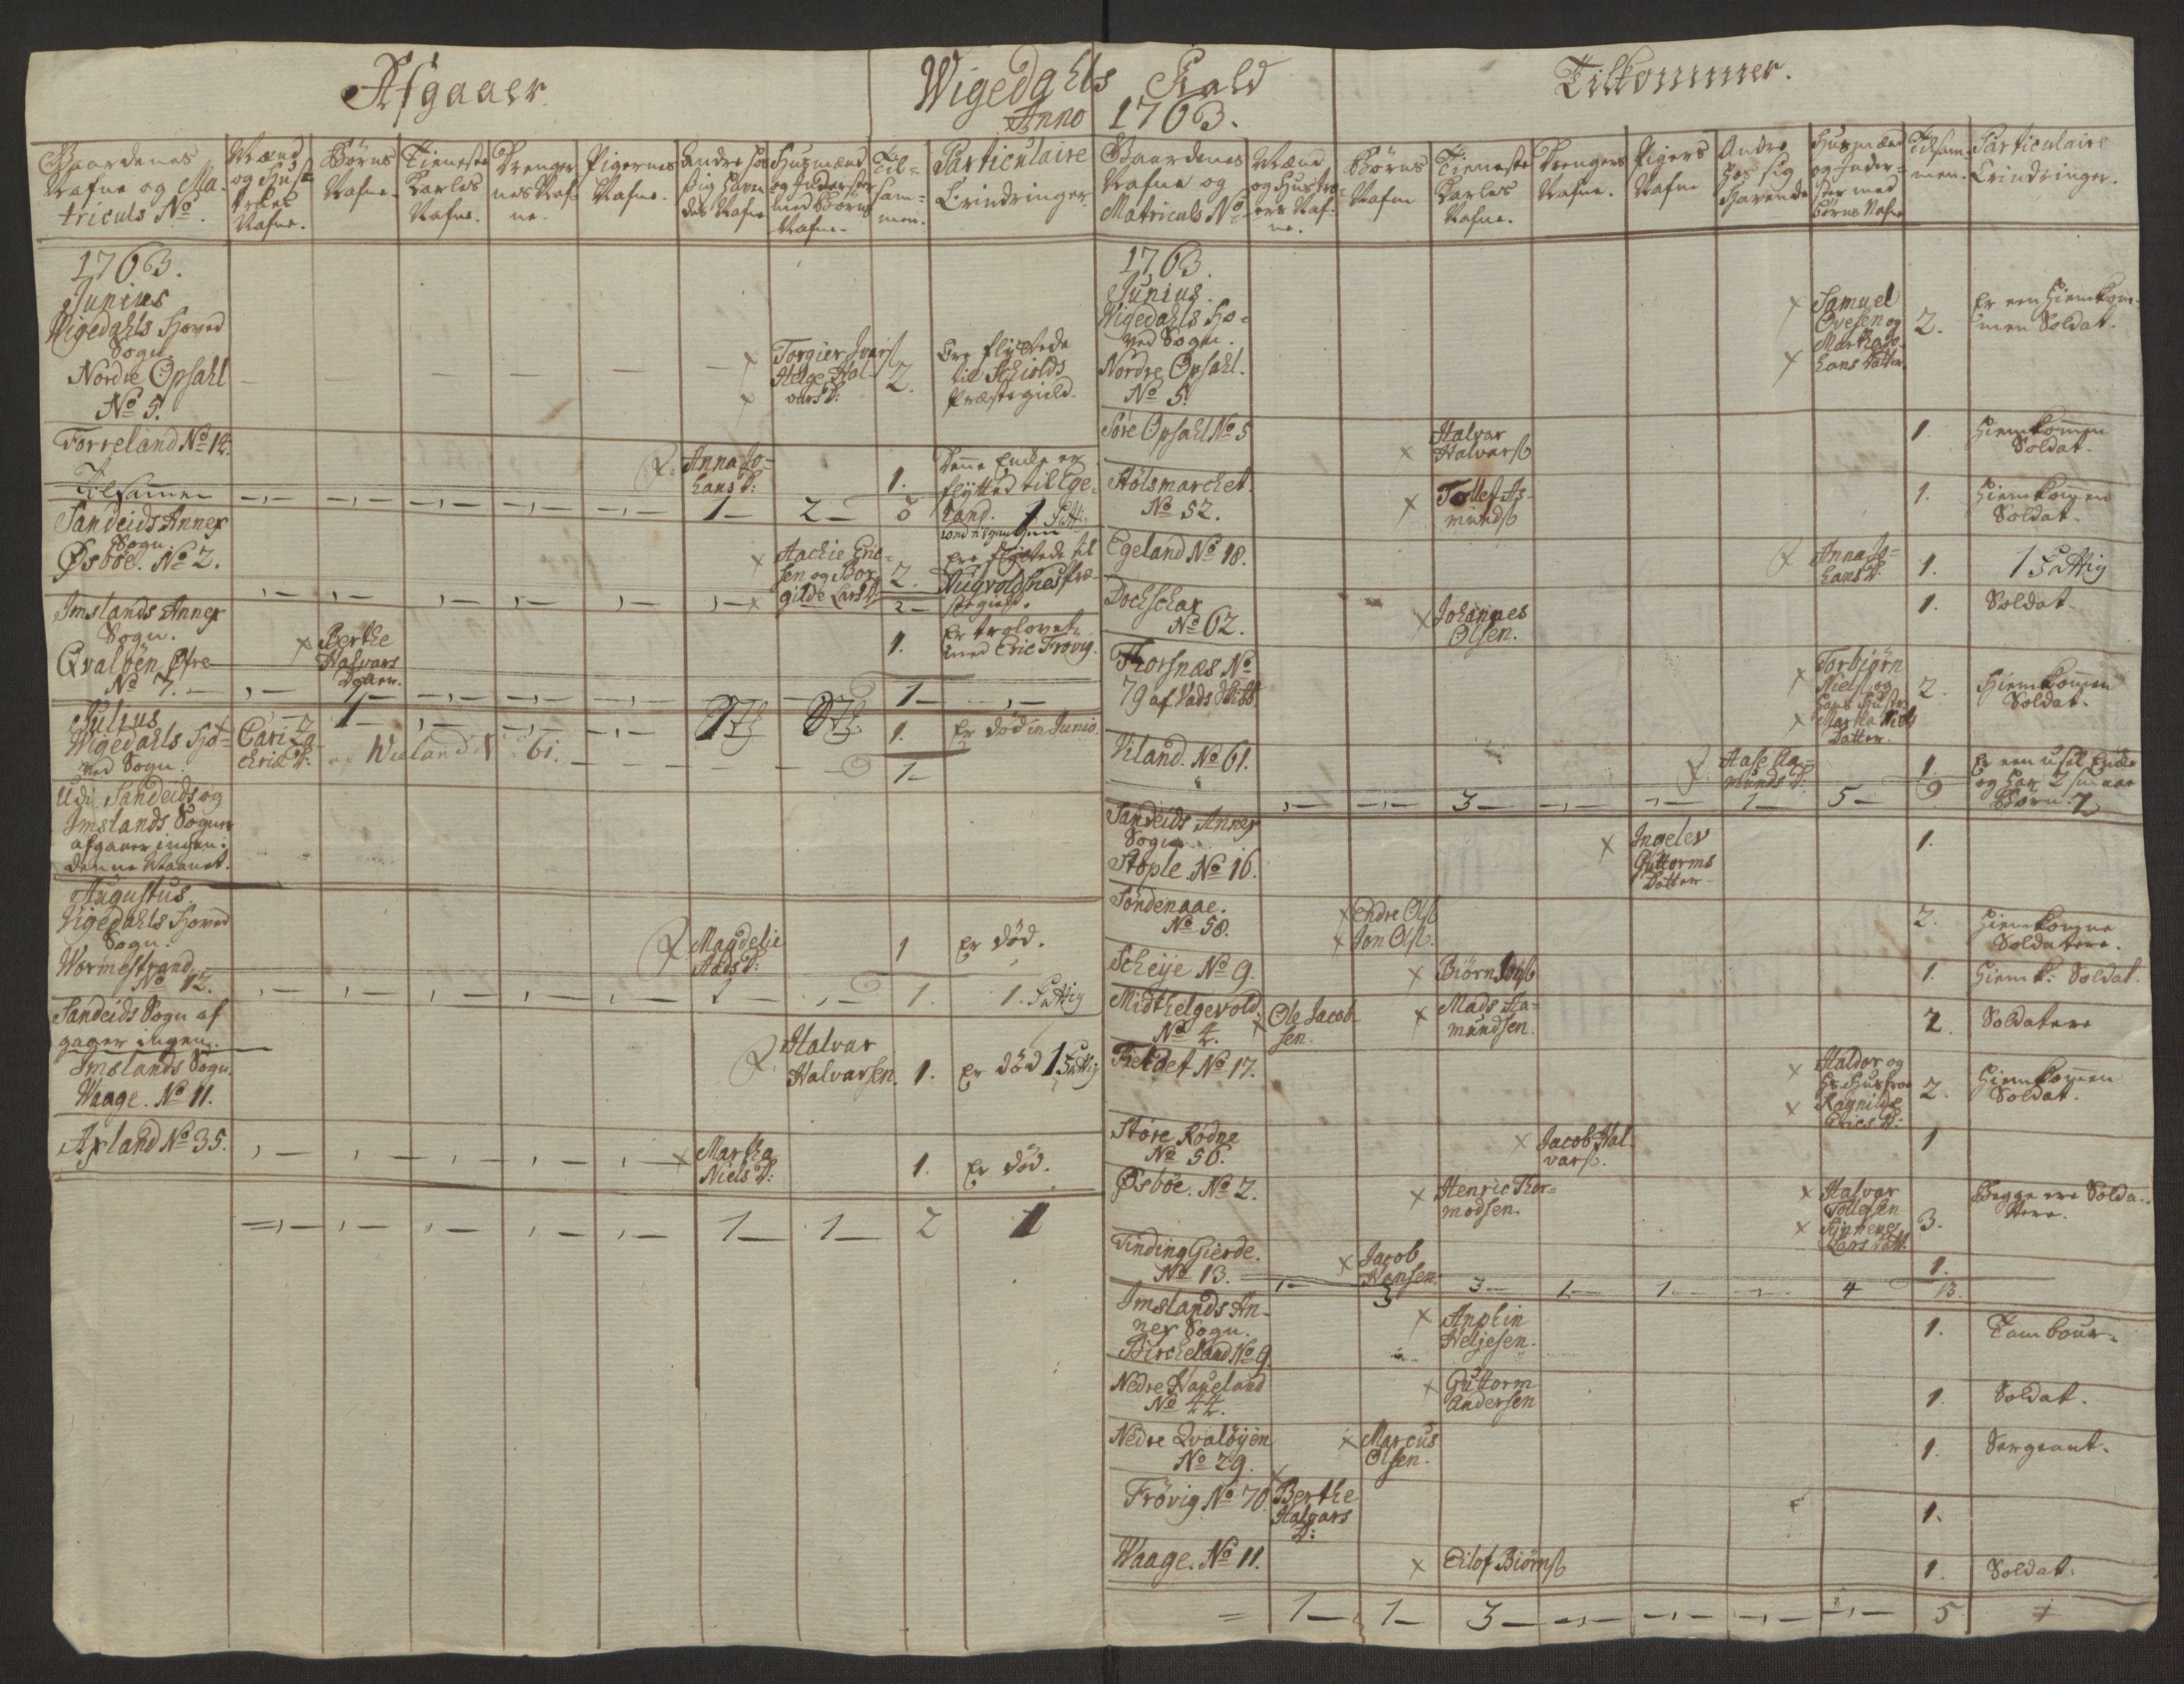 Afgaaer.
Wigedahls Kald
Anno 1763.
Tilkommer.
Gaardenes
Nafne og Ma-
triculs No.
Mænd
og Hu-
struers
Nafne.
Börns
Nafne.
Tieneste
Karles
Nafne.
Drenge-
nes Naf-
ne.
Pigernes
Nafne.
Andre hos
sig Haven-
des Nafne
Husmænd
og Inderster
med Börns
Nafne.
Til-
sam-
men.
Particulaire
Erindringer.
1763.
Junius
Wigedahls Hoved
Sogn.
Nordre Opsahl
No 5.
Torgier Ivers.
Helge Hal-
vars D:
2.
Ere flyttede
til Schiolds
Præstegield.
Torreland No 14.
Anna Jo-
hans D:
1.
Denne Encke er
flytted til Ege-
land. 1 Fattig
Tilsammen
1 2 3
Sandeids Annex
Sogn.
Øsböe. No 2.
Aachie Eric-
sen og Bor-
gilde Lars D.
2.
Ere flyttede til
Augvoldsnes Præ-
stegield.
2
Imslands Annex
Sogn.
Qvalöen Øfre
No 7.
Berthe
Halvars
Dotter.
1.
Er trolovet
med Eric Frövig.
1 1
Julius
Wigedahls Ho-
ved Sogn.
Cari La-
Erics D:
af Wieland No 61.
1.
Er död in Junio.
1
Udi Sandeids og
Imslands Sogner
afgaaer ingen i
denne Maanet.
Augustus.
Vigedahls Hoved
Sogn.
Wormestrand
No 12.
Magdelie
Aads D:
1
Er död.
1 1. 1. Fattig
Sandeids Sogn af
gaaer ingen.
Imslands Sogn.
Waage. No 11.
Halvar
Halvarsen.
1.
Er död 1 Fattig
Axland No 35.
Martha
Niels D:
1.
Er död.
1 1 2 1
Gaardenes
Nafne og
Matriculs No
Mænd
og Hustru-
ers Naf-
ne.
Börns
Nafne
Tieneste
Karles
Nafne.
Drengers
Nafne.
Pigers
Nafne
Andre
hos sig
Havende
Husmænd
og Inder-
ster med
Börns Nafne
Tilsam-
men.
Particulaire
Erindringer.
1763.
Junius.
Wigedahls Ho-
ved Sogn.
Nordre Opsahl.
No 5.
Samuel
Ovesen og
Martha Jo-
hans Datter.
2.
Er een hiemkom-
men Soldat.
Söre Opsahl No 5
Halvar
Halvars.
1.
Hiemkommen
Soldat.
Hölsmarchet.
No 52.
Tollef As-
munds.
1.
Hiemkommen
Soldat.
Egeland No 18.
Anna Jo-
hans D.
1.
1 Fattig
Dochschar
No 62.
Johannes
Olsen.
1.
Soldat.
Thorsnæs No
79 af Vads
Torbiörn
Niels. og
hans Hustru
Martha Niels
Datter.
2.
Hiemkommen
Soldat.
Viland. No 61.
Aase Aa-
munds D.
1.
Er een usel Encke
og har 2 smaae
Börn. 1
3 1 5 9
Sandeids Annex
Sogn.
Stople No 16.
Ingelev
Guttorms
Datter
1.
Söndenaae.
No 58.
Endre Ols.
Jon Ols.
2.
Hiemkomne
Soldatere.
Scheije No 9.
Biörn
1.
Hiemk: Soldat.
Midthelgevold.
No 4.
Ole Jacob-
sen.
Mads Aa-
mundsen.
2.
Soldatere
Fieldet No 17.
Haldor og
hs. Hustroe
Ragnilde
Erics D:
2.
Hiemkommen
Soldat.
Störe Rödne
No 56.
Jacob Hal-
vars.
1
Øsböe. No 2.
Henric Thor-
modsen.
Halvar
Tollefsen
Synneve
Lars Datt.
3.
Begge ere Solda-
tere.
Tinding Gierde.
No 13.
Jacob
Hansen.
1.
1 3 3 1 1 4 13.
Imslands An-
nex Sogn.
Bircheland No 9
Anphin
Heljesen.
1.
Tambour.
Nedre Haueland
No 44.
Guttorm
Andersen
1.
Soldat.
Nedre Qvalöyen
No 29.
Marcus
Olsen.
1.
Sergeant.
Frövig No 70.
Berthe
Halvars
D:
1.
Waage. No 11.
Eilof Biörns.
1.
Soldat.
1 1 3 5